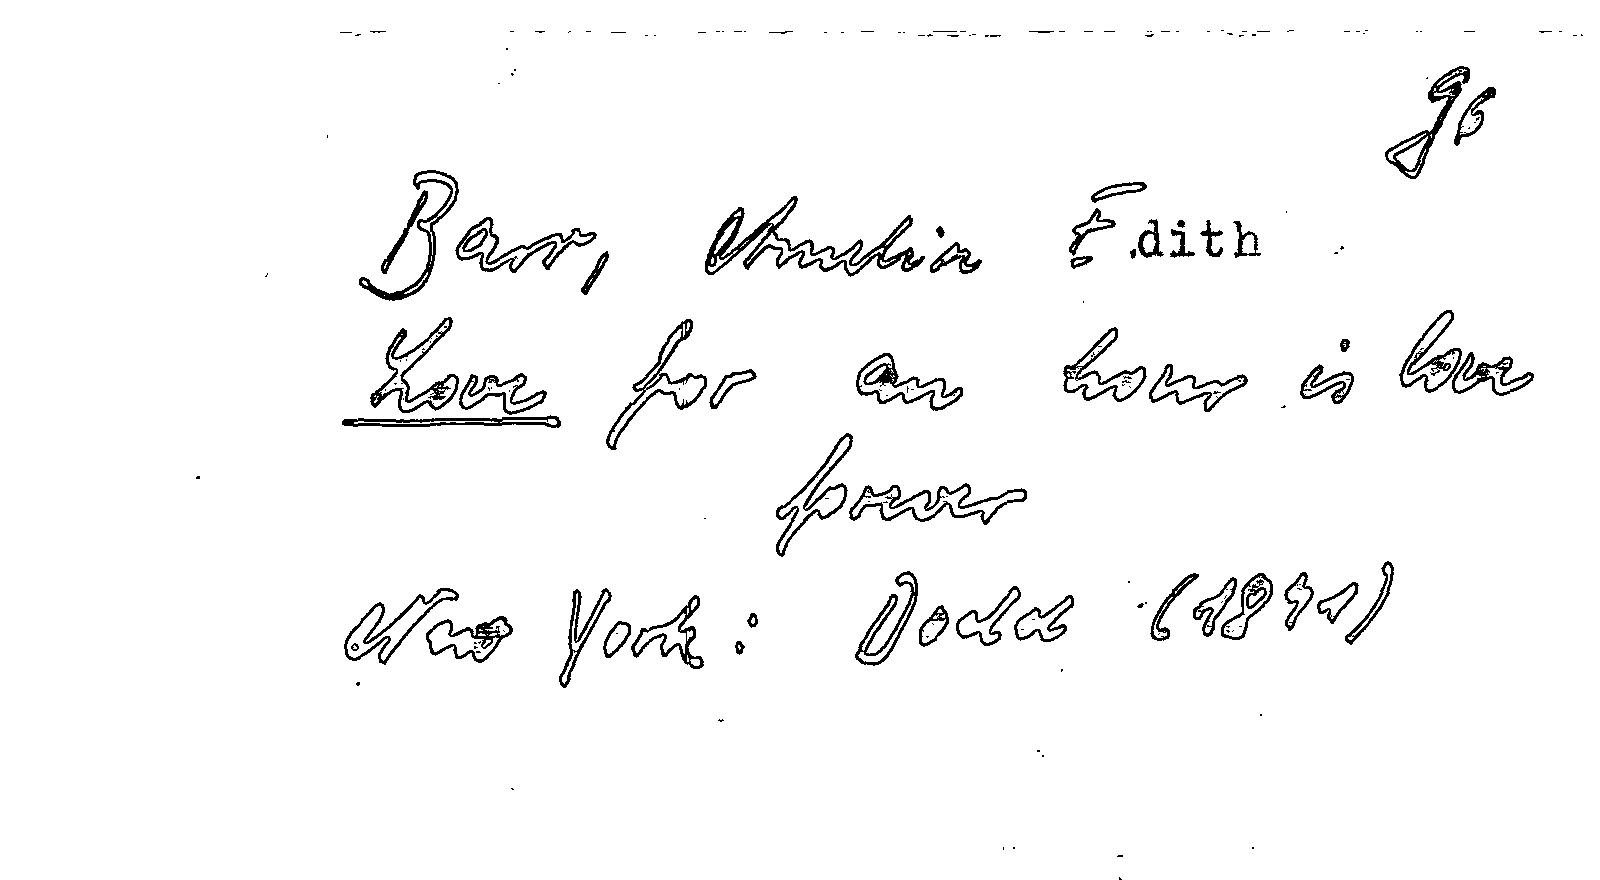 gs
Barr, Amelia Edith
Love for an hour is love
forever
New York: Dodd (1891)